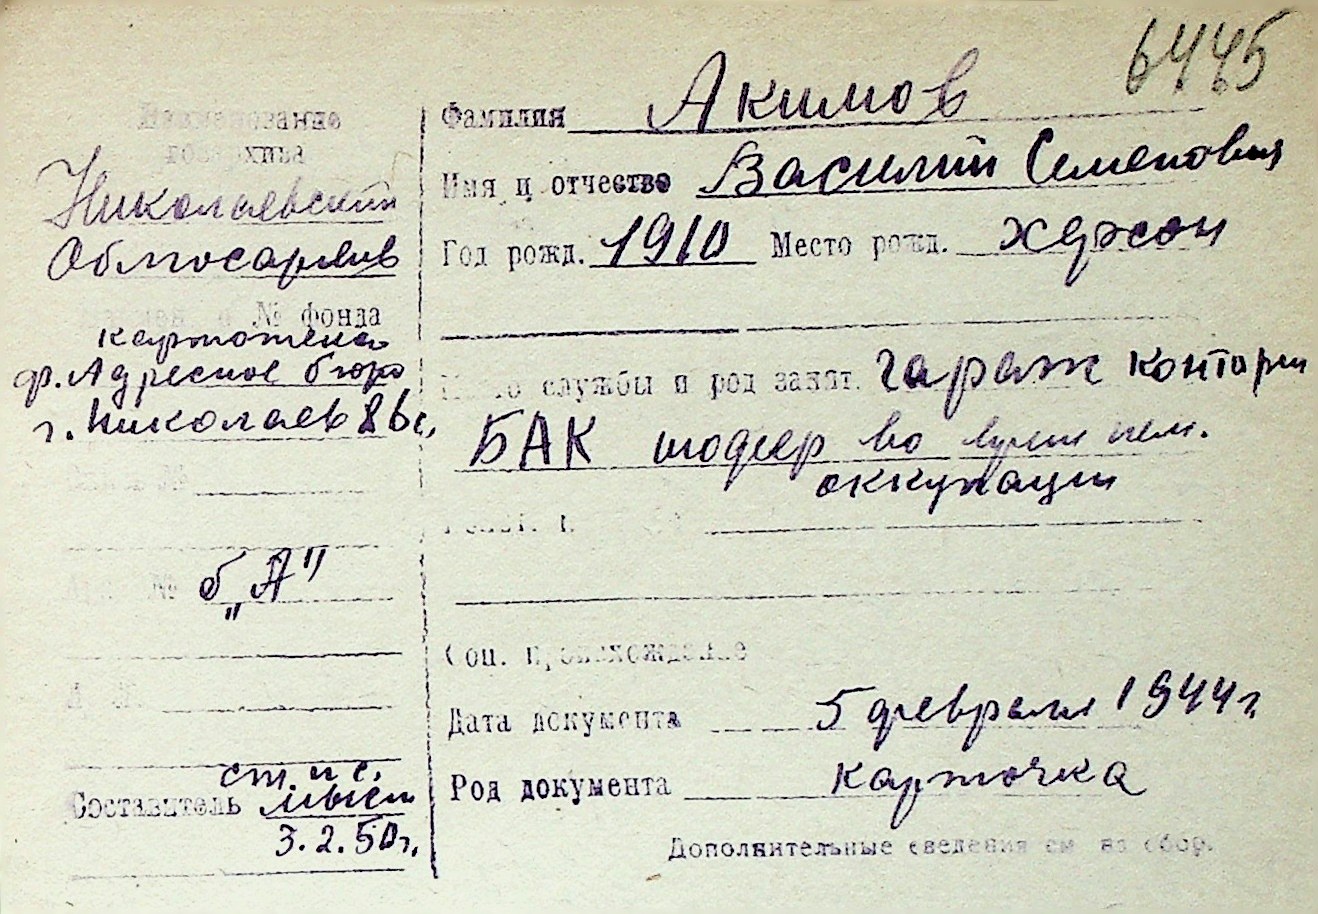 6445
Наименование
госархива
Николаевский
Облгосархив
№ фонда
картотека
ф. Адресное бюро
г. Николаев
№
б. „А"
Составитель
ст. н. с.
3.2.50 г.
Фамилия Акимов
Имя и отчество Василий Семенович
Год рожд. 1910 Место рожд. Херсон
службы и род занят. гараж конторы
БАК шофер во время нем.
оккупации
Соц. происхождение
Дата документа 5 февраля 1944 г.
Род документа карточка
Дополнительные сведения см на обор.